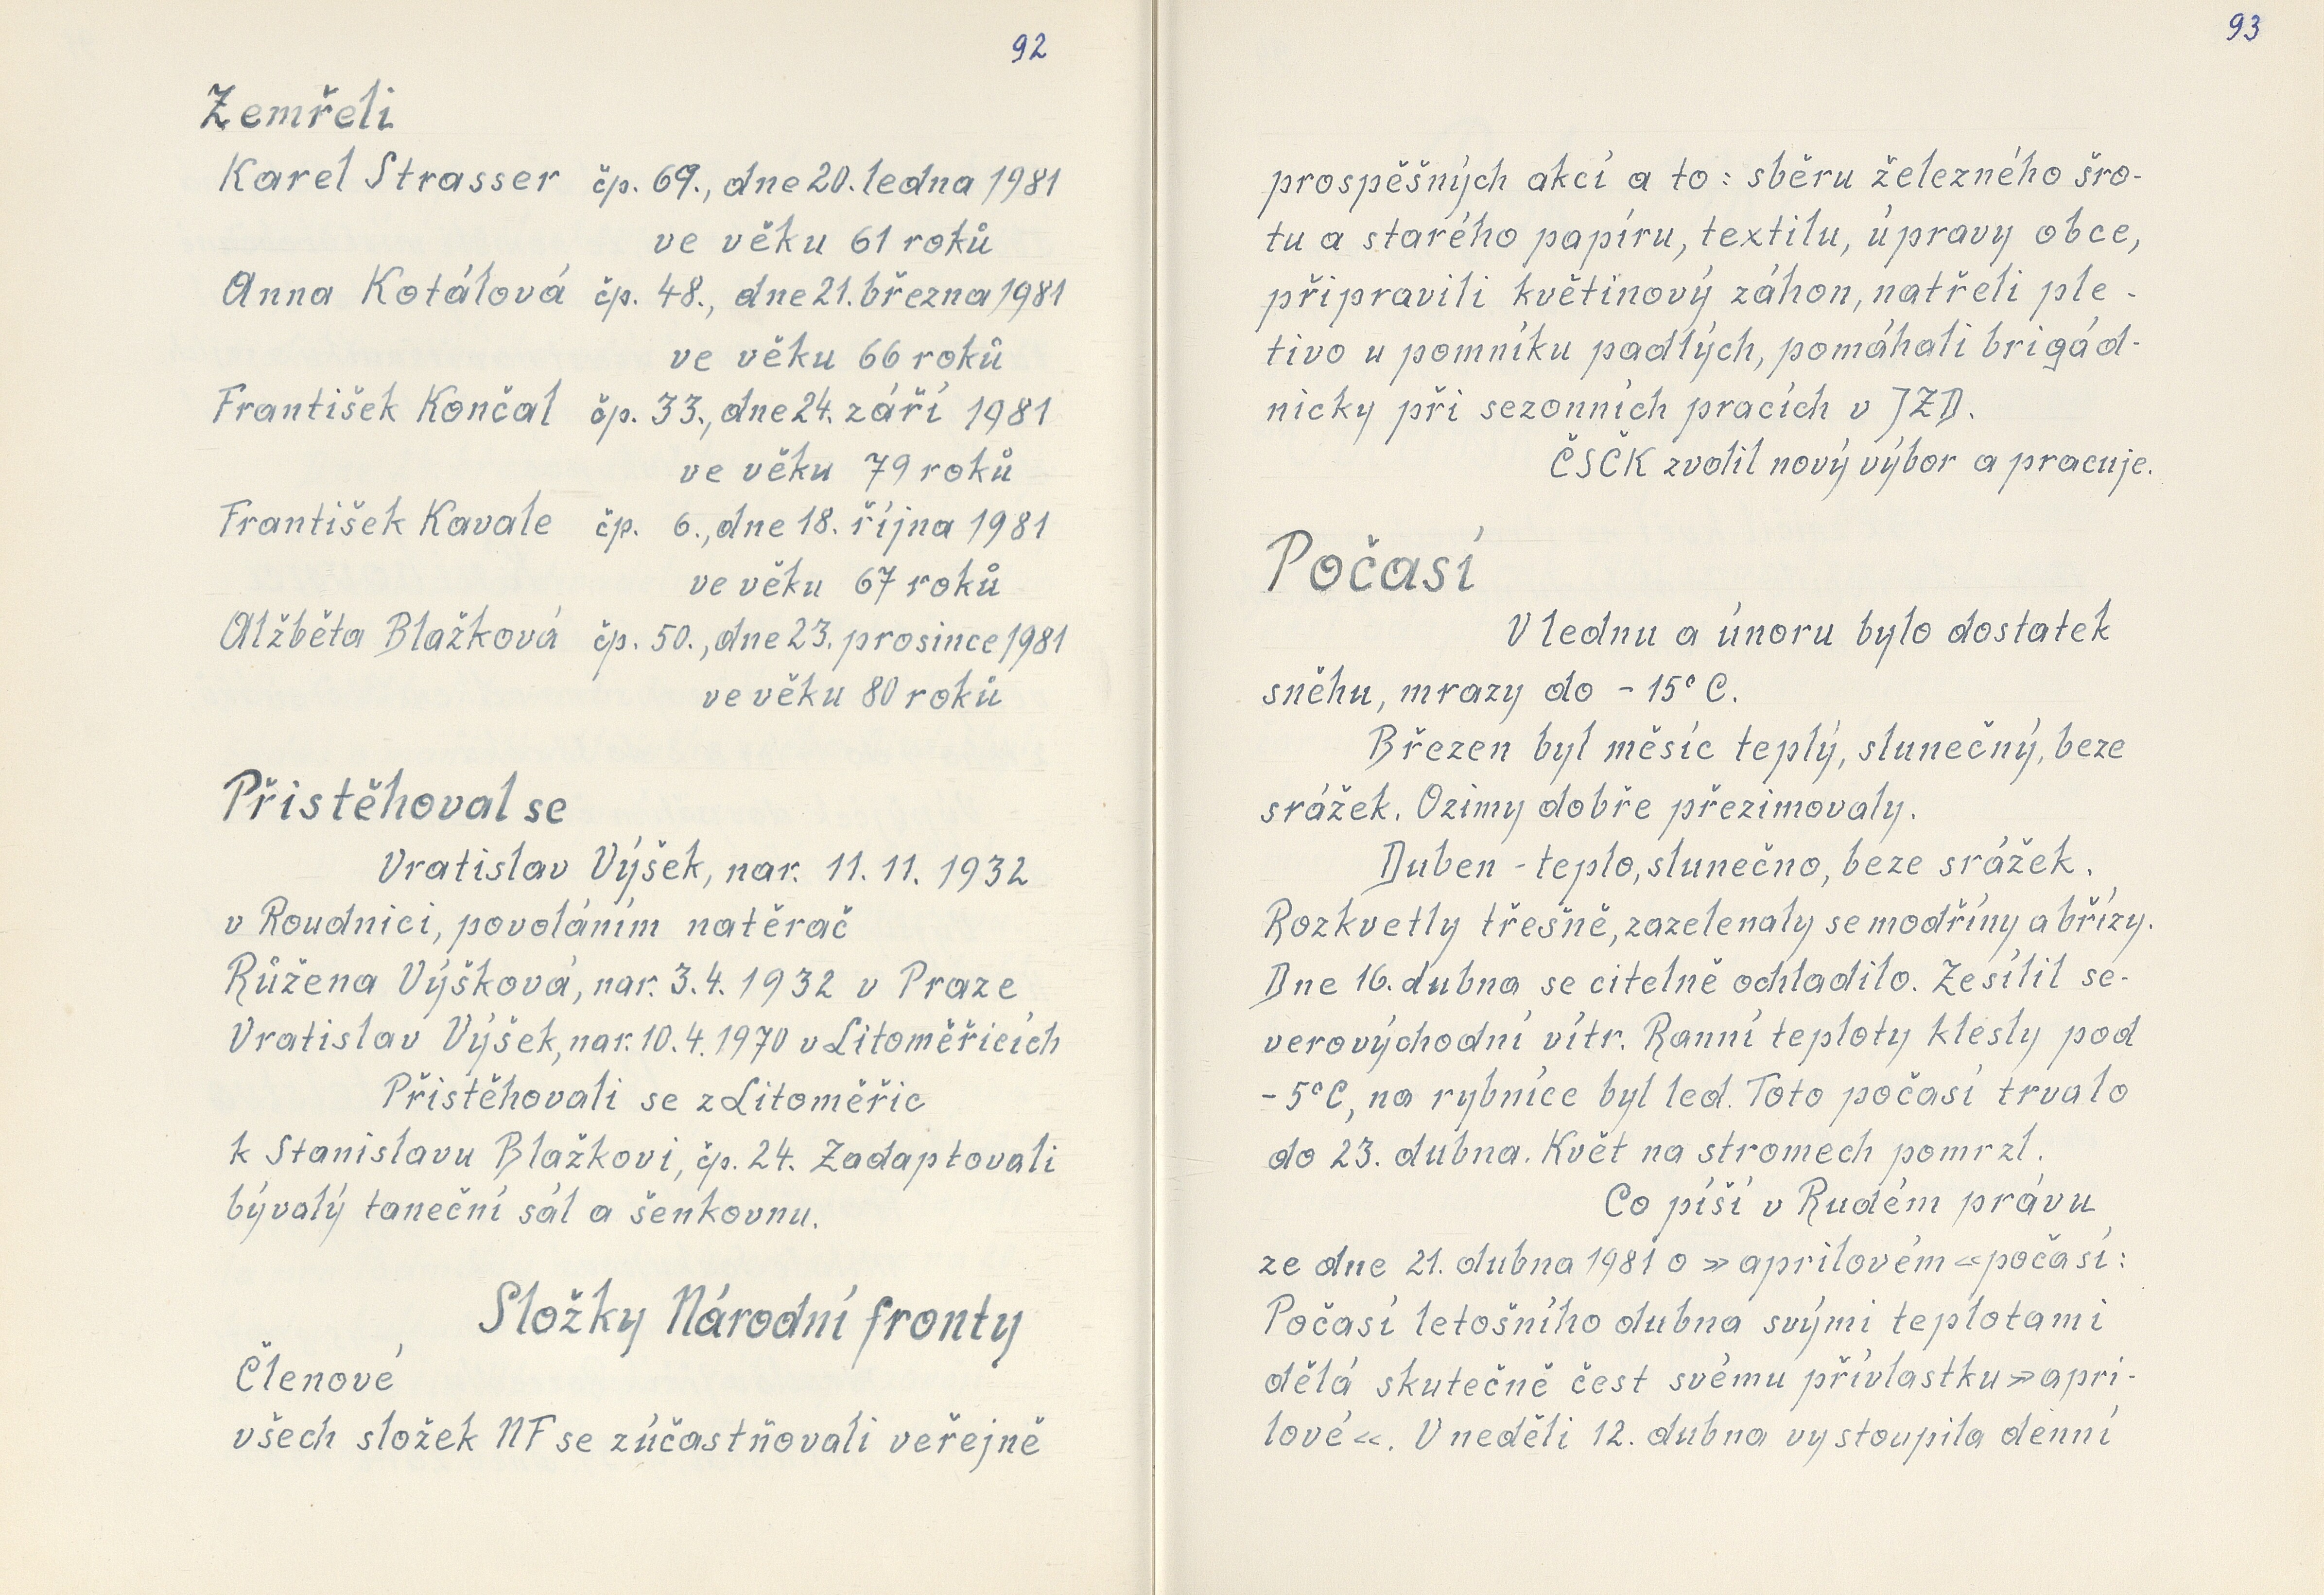 92
Zemřeli
Karel Strasser čp. 69., dne 20. ledna 1981
ve věku 61 roků
Anna Kotálová čp. 48., dne 21. března 1981
ve věku 66 roků
František Končal čp. 33., dne 24. září 1981
ve věku 79 roků
František Kavale čp. 6., dne 18. října 1981
ve věku 67 roků
Alžběta Blažková čp. 50., dne 23. prosince 1981
ve věku 80 roků
Přistěhoval se
Vratislav Výšek, nar. 11. 11. 1932
v Roudnici, povoláním natěrač
Růžena Výšková, nar. 3. 4. 1932 v Praze
Vratislav Výšek, nar. 10. 4. 1970 v Litoměřicích
Přistěhovali se z Litoměřic
k Stanislavu Blažkovi, čp. 24. Zadaptovali
bývalý taneční sál a šenkovnu.
Složky Národní fronty
Členové
všech složek NF se zúčastňovali veřejně
93
prospěšných akcí a to : sběru železného šro-
tu a starého papíru, textilu, úpravy obce,
připravili květinový záhon, natřeli ple -
tivo u pomníku padlých, pomáhali brigád-
nicky při sezonních pracích v JZD.
ČSČK zvolil nový výbor a pracuje.
Počasí
V lednu a únoru bylo dostatek
sněhu, mrazy do - 15° C.
Březen byl měsíc teplý, slunečný, beze
srážek. Ozimy dobře přezimovaly.
Duben - teplo, slunečno, beze srážek.
Rozkvetly třešně, zazelenaly se modříny a břízy.
Dne 16. dubna se citelně ochladilo. Zesílil se-
verovýchodní vítr. Ranní teploty klesly pod
- 5°C, na rybníce byl led. Toto počasí trvalo
do 23. dubna. Květ na stromech pomrzl.
Co píší v Rudém právu
ze dne 21. dubna 1981 o » aprilovém « počasí :
Počasí letošního dubna svými teplotami
dělá skutečně čest svému přívlastku » apri-
lové «. V neděli 12. dubna vystoupila denní